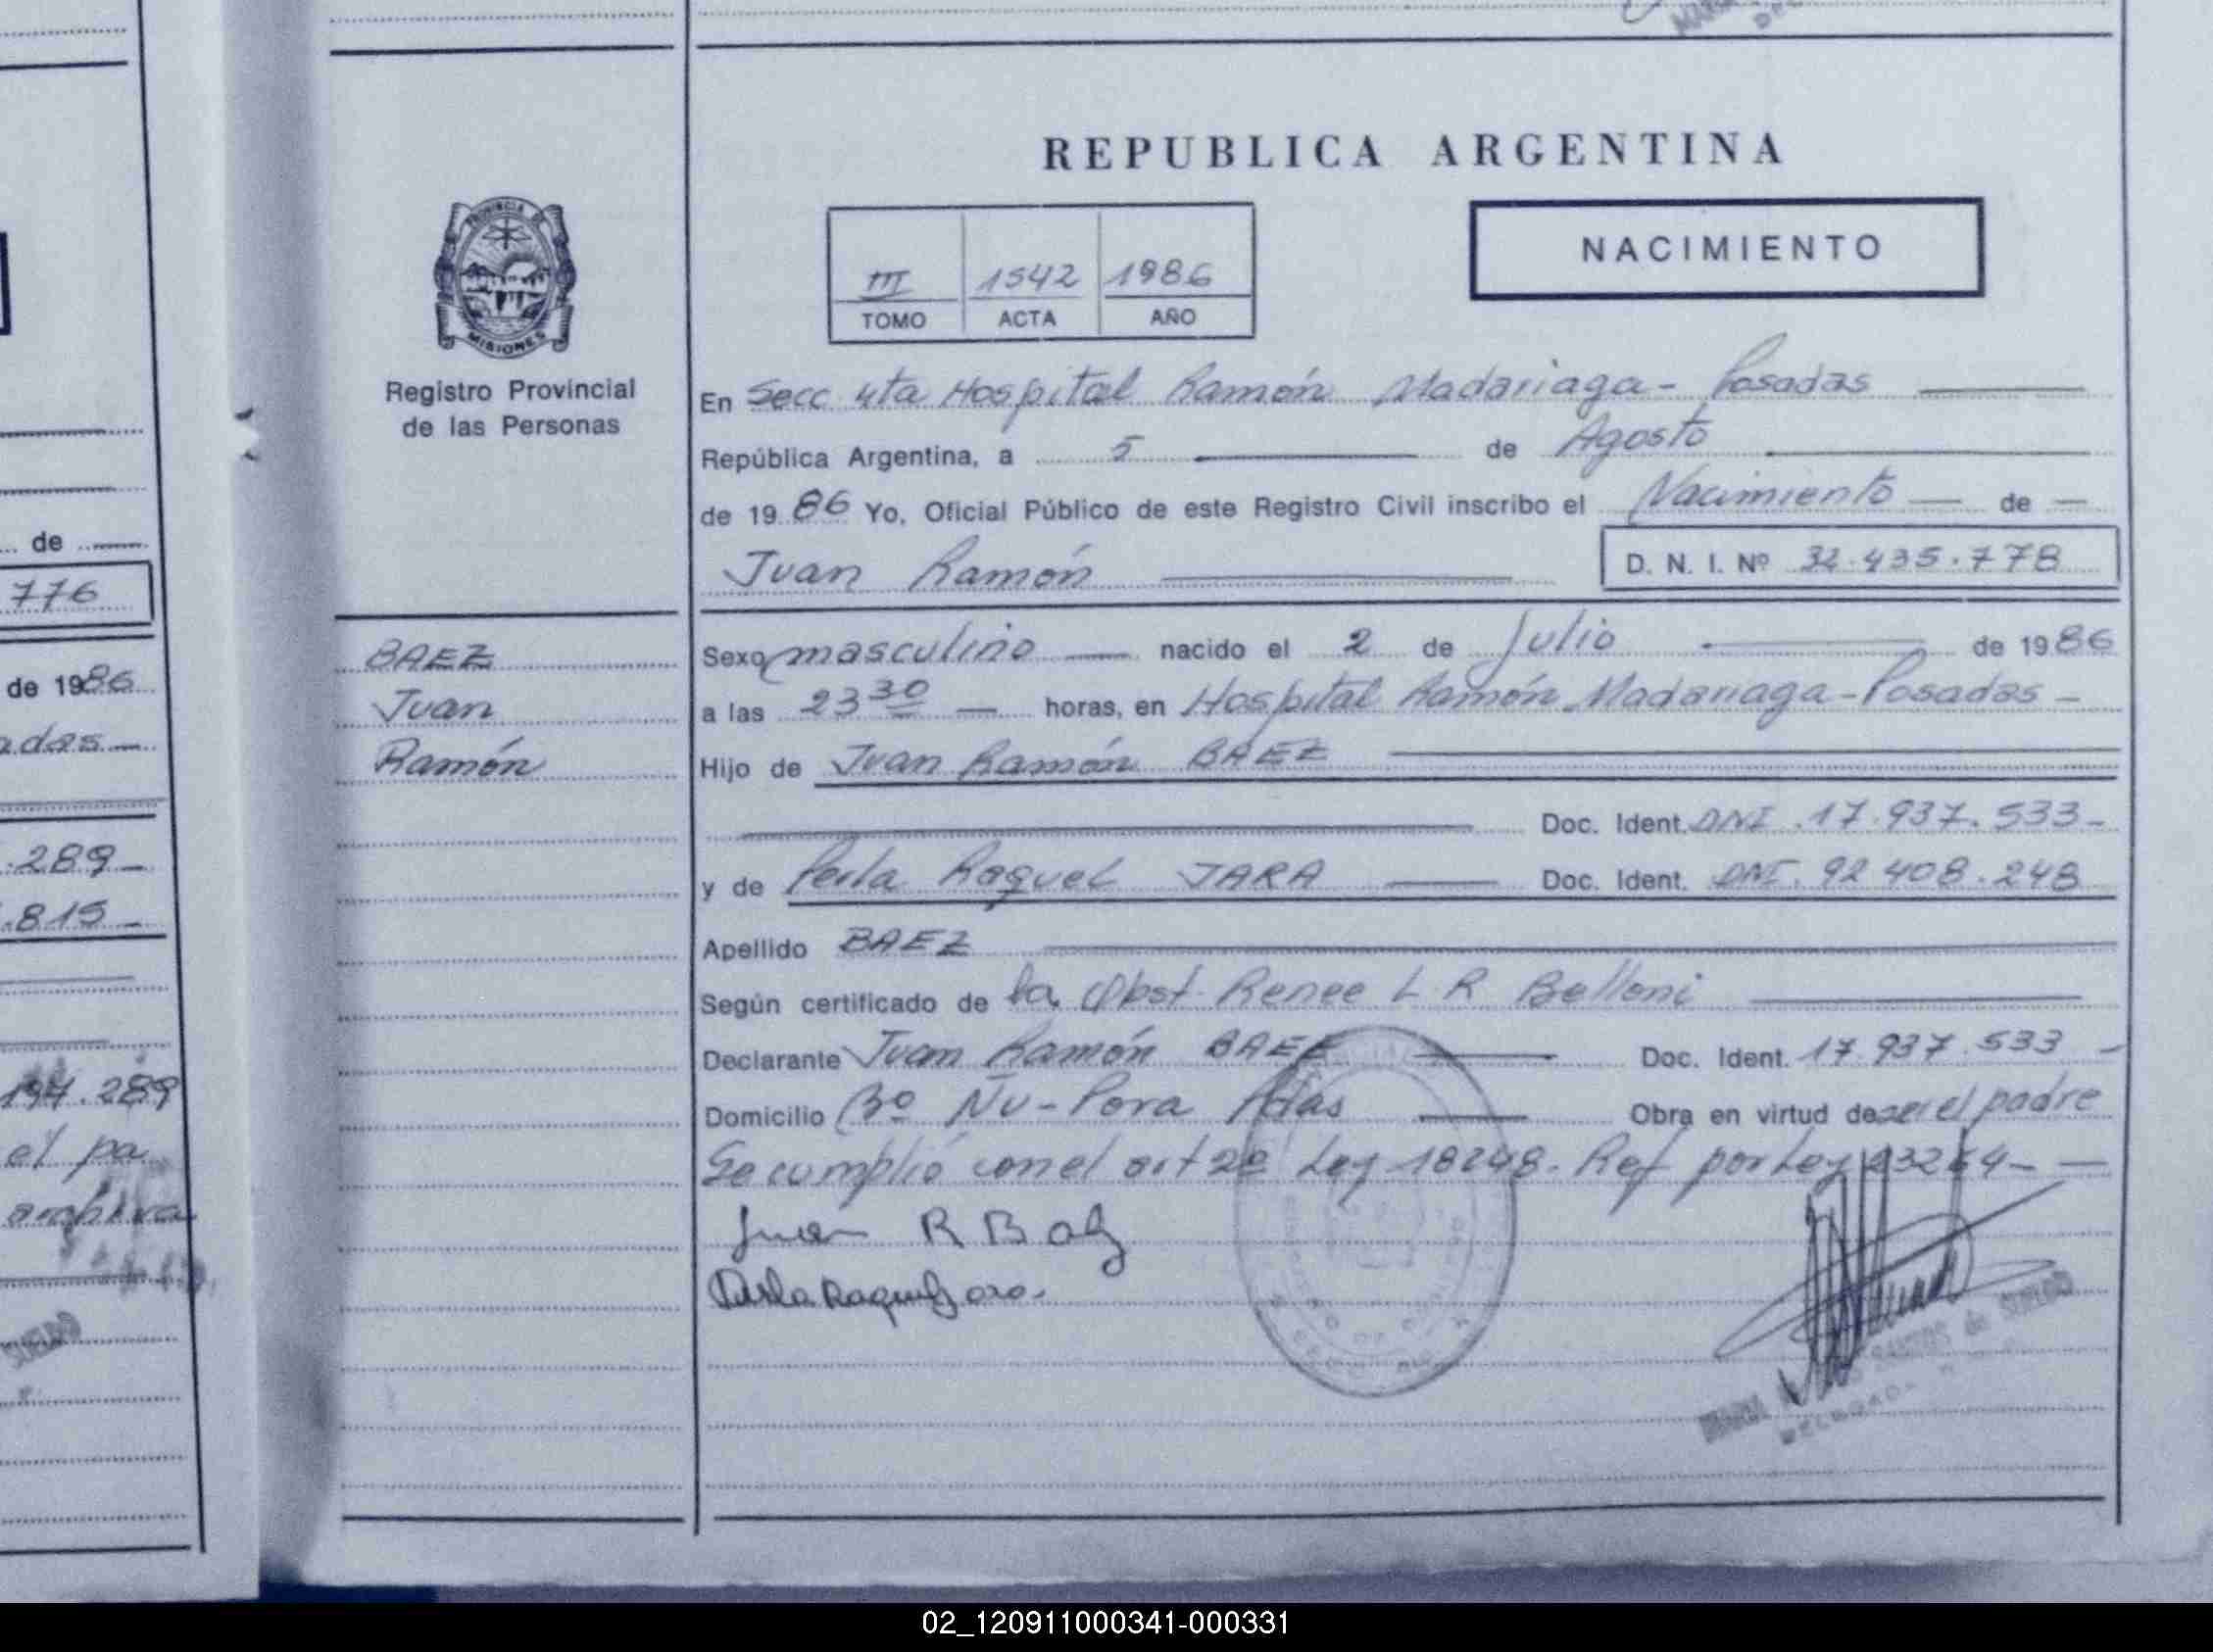 REPUBLICA ARGENTINA
NACIMIENTO
III 1542 1986
TOMO ACTA AÑO
PROVINCIA DE
MISIONES
Registro Provincial
de las Personas
En Secc 4ta Hospital Ramón Madariaga - Posadas
República Argentina, a 5 de Agosto
de 1986 Yo, Oficial Público de este Registro Civil inscribo el Nacimiento — de —
Juan Ramón D. N. I. Nº 32.435.778
BAEZ
Juan
Ramón
Sexo masculino — nacido el 2 de Julio de 1986
a las 23 30 — horas, en Hospital Ramón Madariaga - Posadas -
Hijo de Juan Ramón BAEZ
Doc. Ident. DNI. 17.937.533-
y de Perla Raquel JARA — Doc. Ident. DNI. 92 408.248
Apellido BAEZ
Según certificado de la Obst. Renee L R Belloni
Declarante Juan Ramón BAEZ — Doc. Ident. 17.937.533 -
Domicilio Bº Ñu-Pora Pdas — Obra en virtud de ser el padre
Se cumplió con el art 2º Ley 18248. Ref por Ley 23264 - —
Juan R Baez
Perla Raquel Jara.
de SUELDO
de
776
de 1986
adas —
.289 —
.815 —
.289
el pa
archiva
SUELDO
02_120911000341-000331